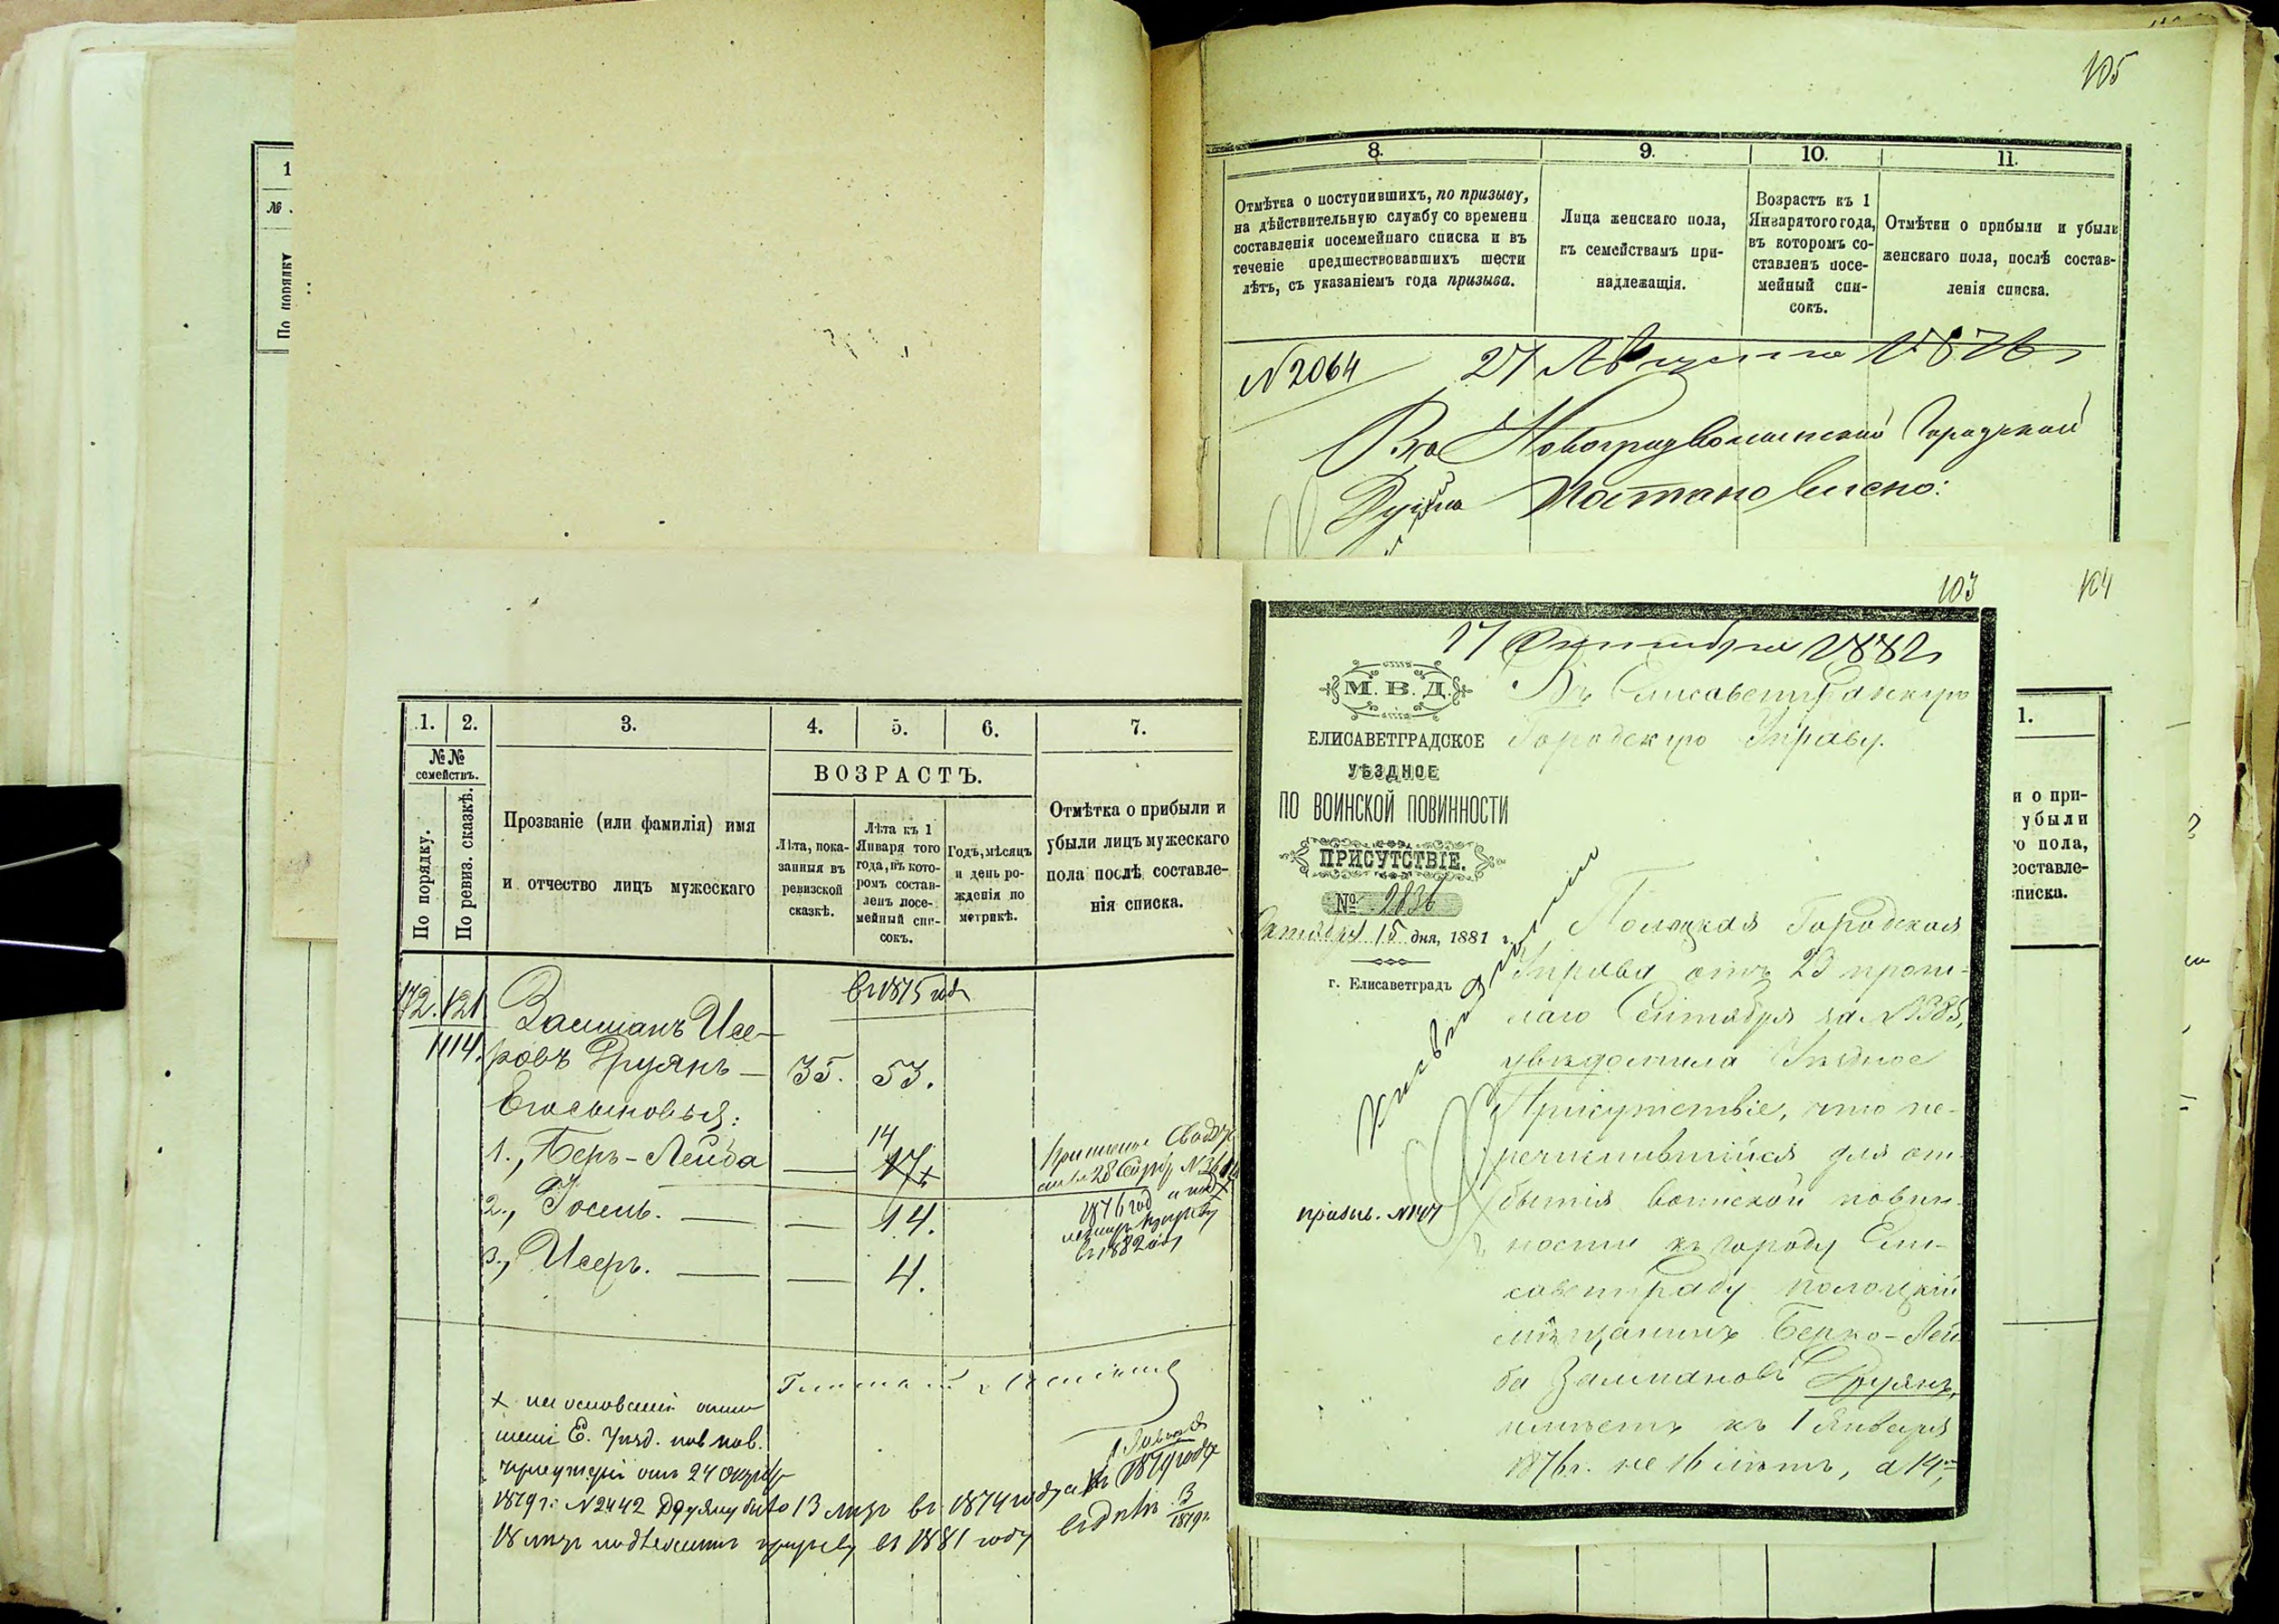 105
8.
9.
10.
11.
Отмѣтка о поступившихъ, по призыву,
на дѣйствительную службу со времени
составленія посемейнаго списка и въ
теченіе предшествовавшихъ шести
лѣтъ, съ указаніемъ года призыва.
Лица женскаго пола,
къ семействамъ при-
надлежащія.
Возрастъ къ 1
Января того года,
въ которомъ со-
ставленъ посе-
мейный спи-
сокъ.
Отмѣтки о прибыли и убыли
женскаго пола, послѣ состав-
ленія списка.
N 2064
27 Августа 1876
Новоградволынской Городской
Постановлено:
1
№
По порядку
1.
2.
3.
4.
5.
6.
7.
№ №
семействъ.
По порядку.
По ревиз. сказкѣ.
Прозваніе (или фамилія) имя
и отчество лицъ мужескаго
ВОЗРАСТЪ.
Лѣта, пока-
занныя въ
ревизской
сказкѣ.
Лѣта къ 1
Января того
года, въ кото-
ромъ состав-
ленъ посе-
мейный спи-
сокъ.
Годъ, мѣсяцъ
и день ро-
жденія по
метрикѣ.
Отмѣтка о прибыли и
убыли лицъ мужескаго
пола послѣ составле-
нія списка.
172. 121
1114.
въ 1875 году
Залманъ Исе-
ровъ Друянъ — 35. 53.
Его сыновья:
1., Беръ-Лейба — 14 17
2., Іосель. — — 14.
3., Исеръ. — — 4.
1876 год
въ 1882 году
х на основаніи отно
шенія Е. Уѣзд. по в. пов.
24
1879 г. N 2442 Друяну было 13 лѣтъ въ 1874 году а къ 1879 году
18 лѣтъ подлежитъ призыву въ 1881 году
3
1879 г.
103
104
17 Октября 1881
М. В. Д.
ЕЛИСАВЕТГРАДСКОЕ
УѢЗДНОЕ
ПО ВОИНСКОЙ ПОВИННОСТИ
ПРИСУТСТВІЕ.
№ 2836
Октября 15 дня, 1881 г.
г. Елисаветградъ
призыв. N 147
Въ Елисаветградскую
Городскую Управу.
Полоцкая Городская
Управа отъ 23 прош-
лаго Сентября за N 3385,
увѣдомила Уѣздное
Присутствіе, что пе-
речислившійся для от
бытія воинской повин-
ности къ городу Ели-
саветграду полоцкій
мѣщанинъ Берко-Лей
ба Залмановъ Друянъ,
имѣетъ къ 1 Января
1876 г. не 16 лѣтъ, а 14,
1.
и о при-
убыли
о пола,
составле-
списка.